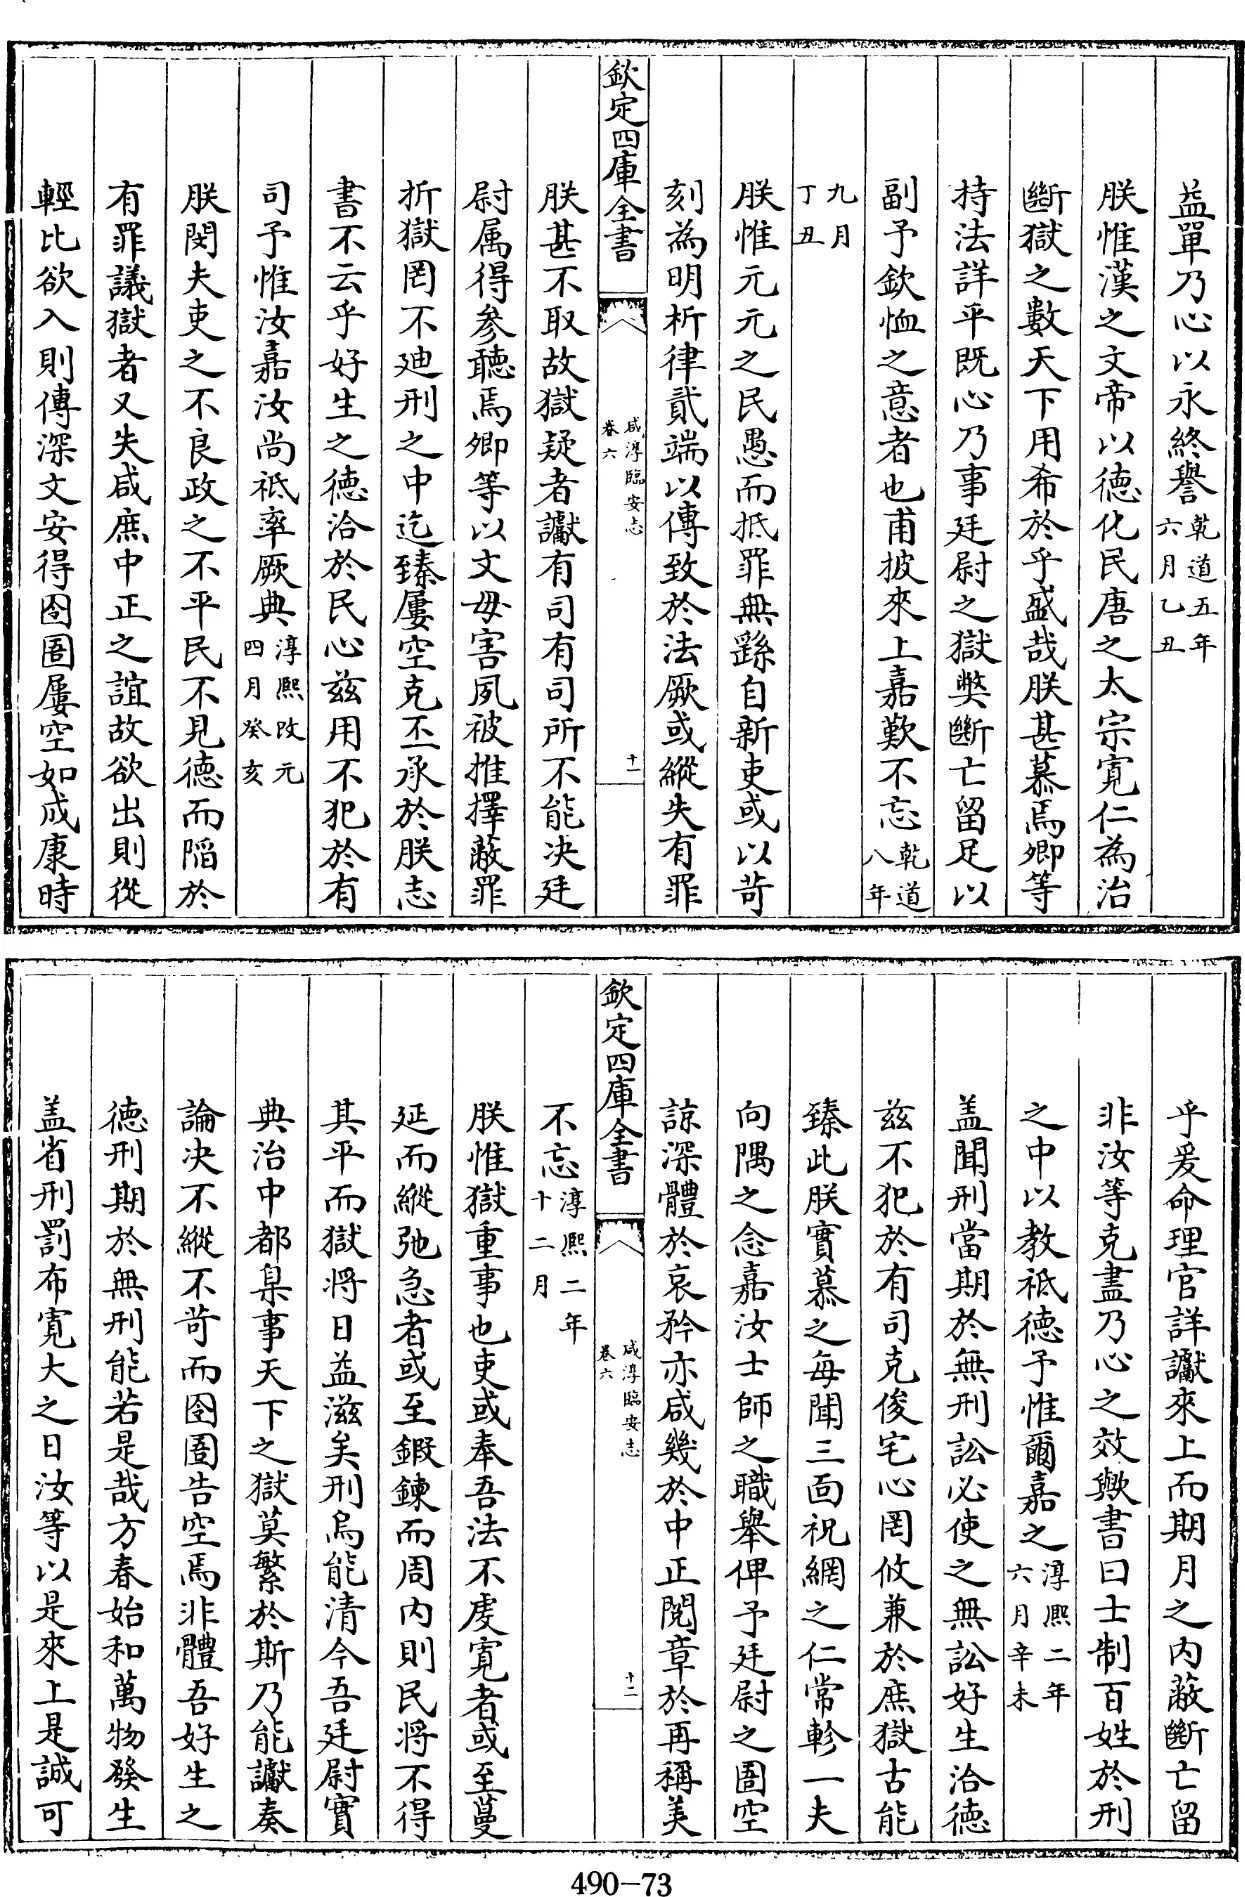 益單乃心以永終譽乾道五年六月乙丑
朕惟漢之文帝以德化民唐之太宗寛仁為治
斷獄之數天下用希於乎盛哉朕甚慕焉卿等
持法詳平既心乃事廷尉之獄奬斷亡留足以
副予欽恤之意者也甫披來上嘉歎不忘乾道八年
九月丁丑
朕惟元元之民愚而抵罪無繇自新吏或以苛
刻為明析律貳端以傅致於法厥或縱失有罪
欽定四庫全書
咸淳臨安志
卷六
十一
朕甚不取故獄疑者讞有司有司所不能决廷
尉属得參聽焉卿等以文毋害夙被推擇蔽罪
折獄罔不廸刑之中迄臻屢空克丕承於朕志
書不云乎好生之德洽於民心兹用不犯於有
司予惟汝嘉汝尚祗率厥典淳熙改元四月癸亥
朕閔夫吏之不良政之不平民不見德而陷於
有罪議獄者又失咸庶中正之誼故欲出則從
輕比欲入則傅深文安得囹圄屢空如成康時
乎爰命理官詳讞來上而期月之内蔽斷亡留
非汝等克盡乃心之效歟書曰士制百姓於刑
之中以教祗德予惟爾嘉之淳熙二年六月辛未
盖聞刑當期於無刑訟必使之無訟好生洽德
兹不犯於有司克俊宅心罔攸兼於庶獄古能
臻此朕實慕之每聞三面祝網之仁常軫一夫
向隅之念嘉汝士師之職舉俾予廷尉之圄空
諒深體於哀矜亦咸幾於中正閲章於再稱美
欽定四庫全書
咸淳臨安志
卷六
十二
不忘淳熙二年十二月
朕惟獄重事也吏或奉吾法不虔寛者或至蔓
延而縱弛急者或至鍛鍊而周内則民将不得
其平而獄将日益滋矣刑烏能清今吾廷尉實
典治中都臬事天下之獄莫繁於斯乃能讞奏
論决不縱不苛而囹圄告空焉非體吾好生之
德刑期於無刑能若是哉方春始和萬物發生
盖省刑罰布寛大之日汝等以是來上是誠可
490-73